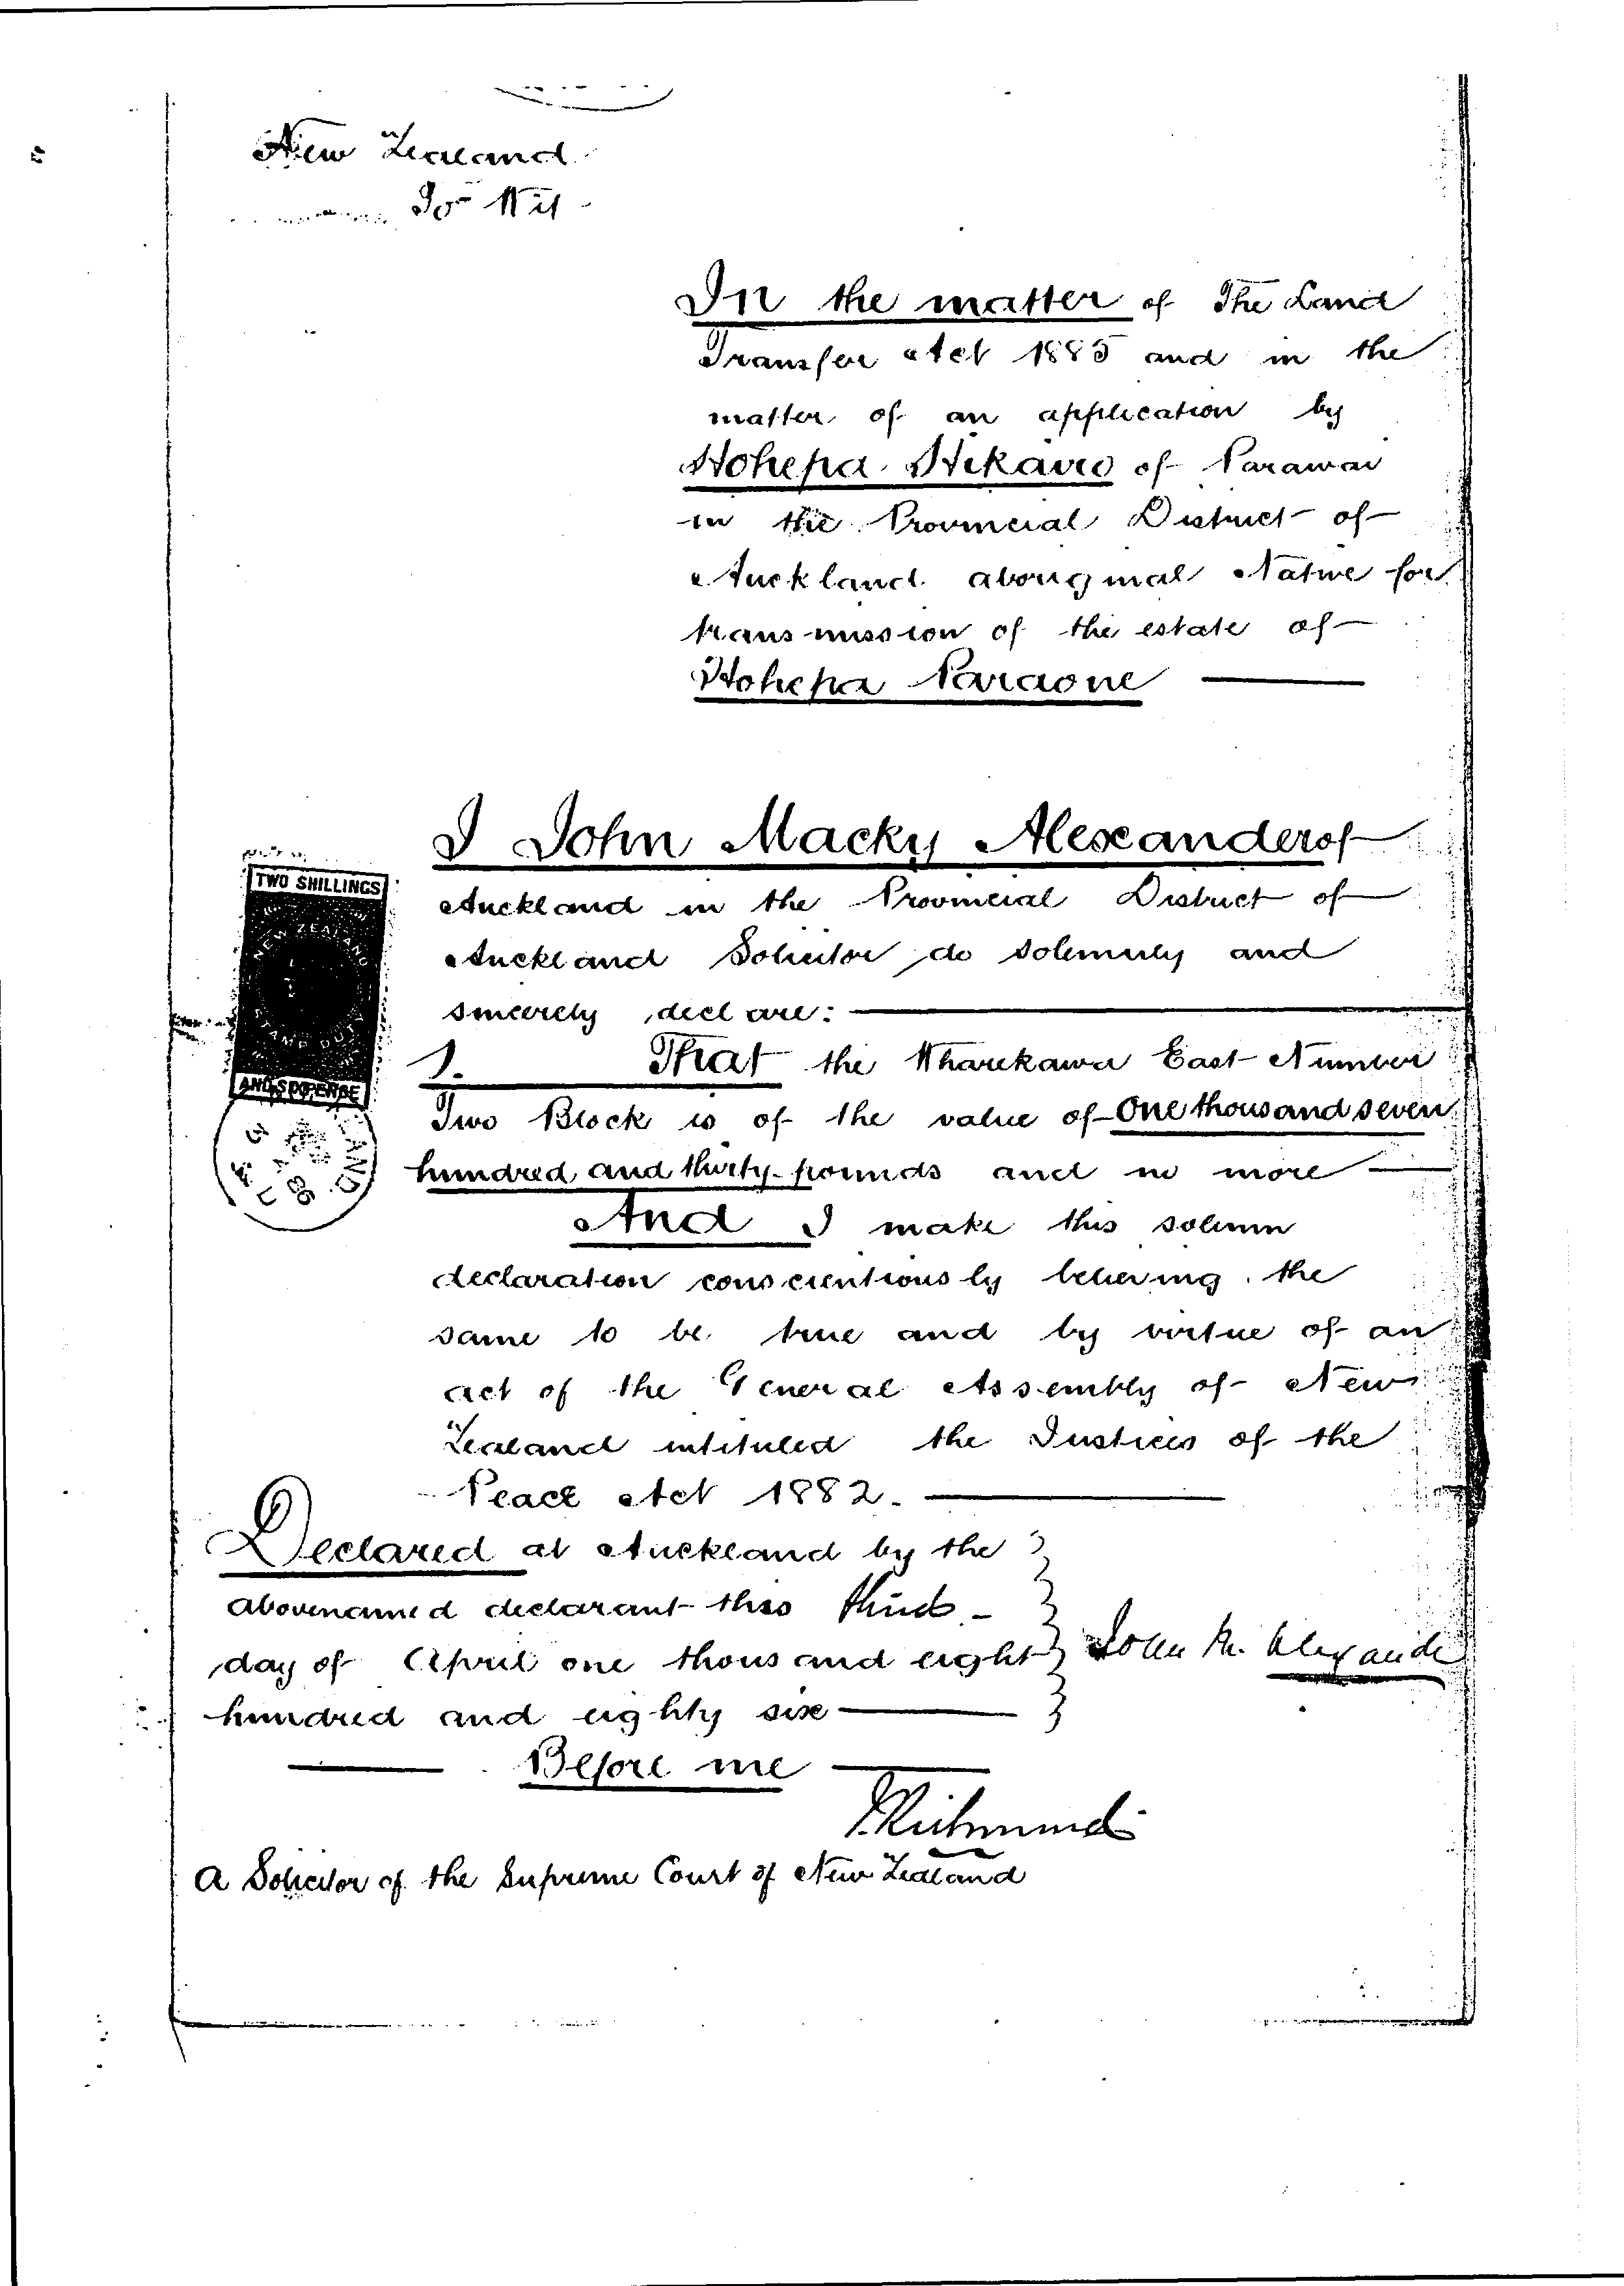 New Zealand
To Wit
In the matter of The Land
Transfer Act 1885 and in the
matter of an application by
Hohepa Hikairo of Parawai
in the Provincial District of
Auckland aboriginal Native for
transmission of the estate of
Hohepa Paraone
I John Macky Alexander of
Auckland in the Provincial District of
Auckland Solicitor do solemnly and
sincerely declare:
1. That the Wharekawa East Number
Two Block is of the value of One thousand seven
hundred and thirty pounds and no more
And I make this solemn
declaration conscientiously believing the
same to be true and by virtue of an
act of the General Assembly of New
Zealand intituled the Justices of the
Peace Act 1882.
Declared at Auckland by the
abovenamed declarant this third
day of April one thousand eight
hundred and eighty six
John M. Alexande
Before me
Richmond
A Solicitor of the Supreme Court of New Zealand
TWO SHILLINGS
NEW ZEALAND
STAMP DUTY
AND SIXPENCE